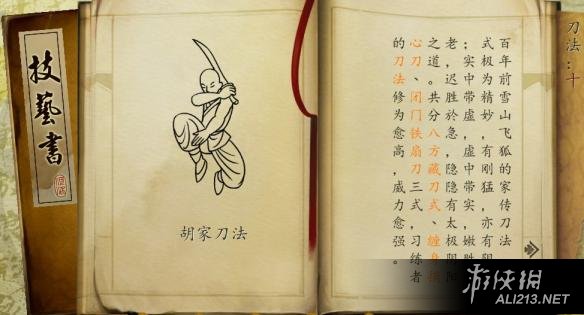 技藝書
胡家刀法
刀法：十
百年前雪山飞狐的家传刀法
式极为精妙，有刚猛，亦有阴
；实中带虚，虚中带实，嫩胜
老，迟胜於急，隐隐有太极阴阳
之道。共分八方藏刀式、缠身摸
心刀、闭门铁扇刀三式，习练者
的刀法修为愈高，威力愈强。
游侠網
ALI213.NET